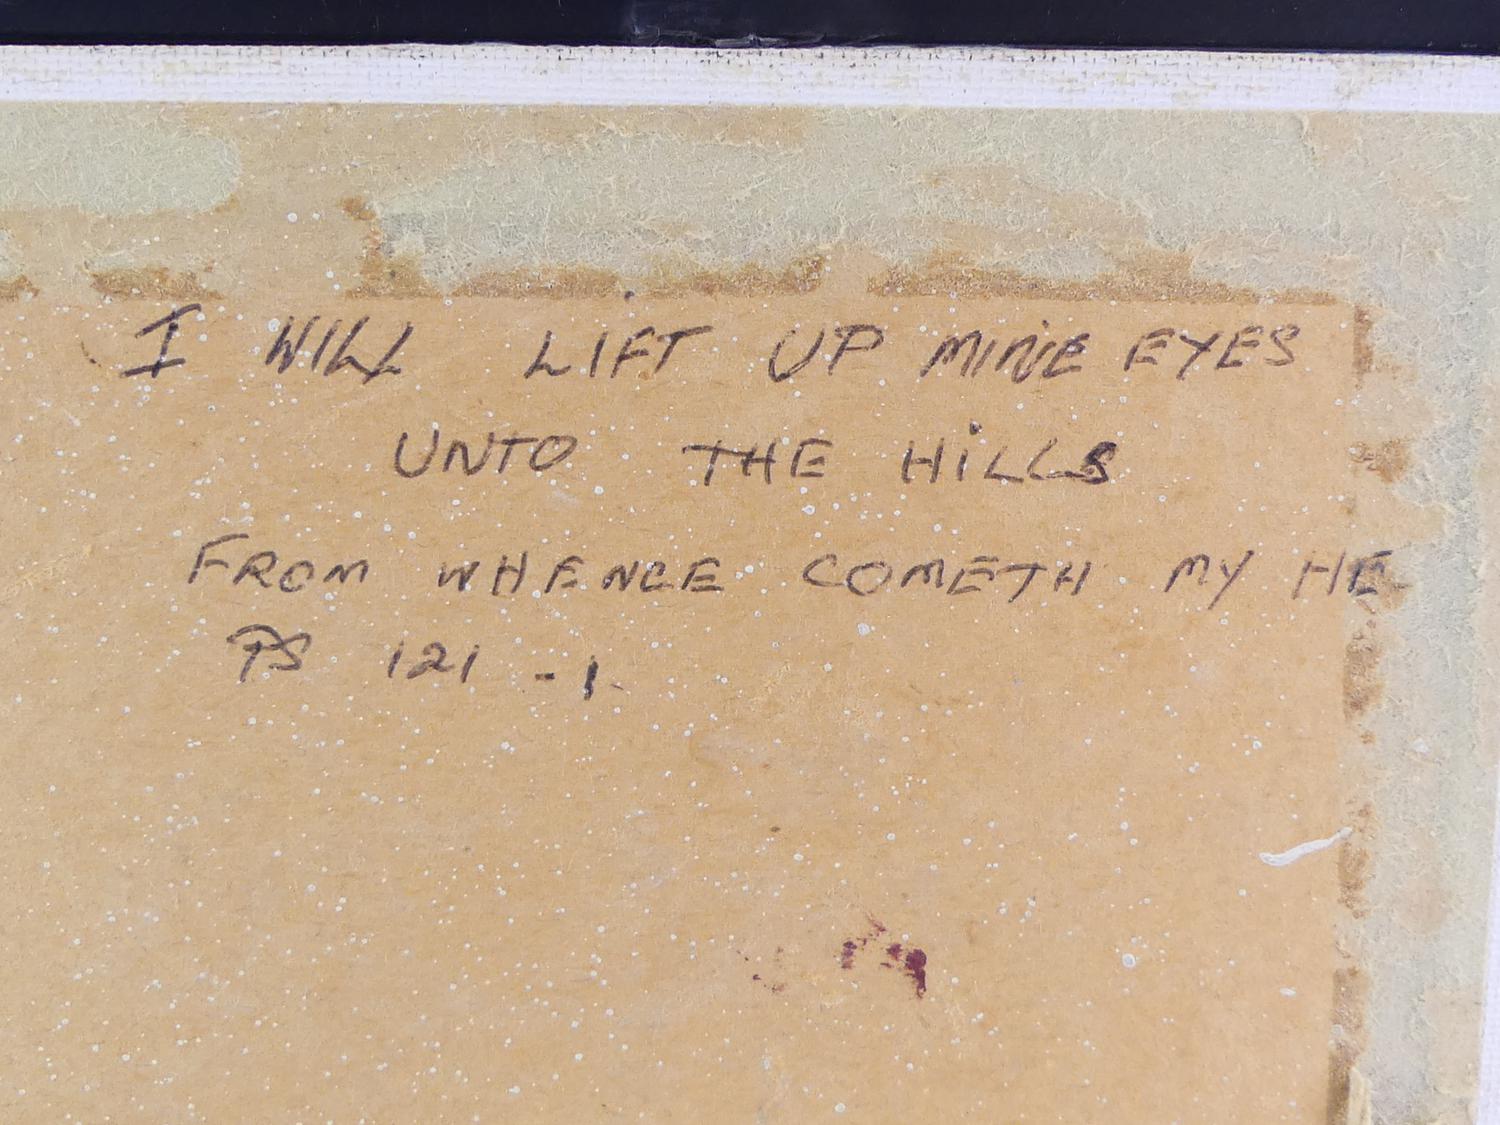 I WILL LIFT UP MINE EYES
UNTO THE HiLLS
FROM WHENCE COMETH MY HE
PS 121 - 1